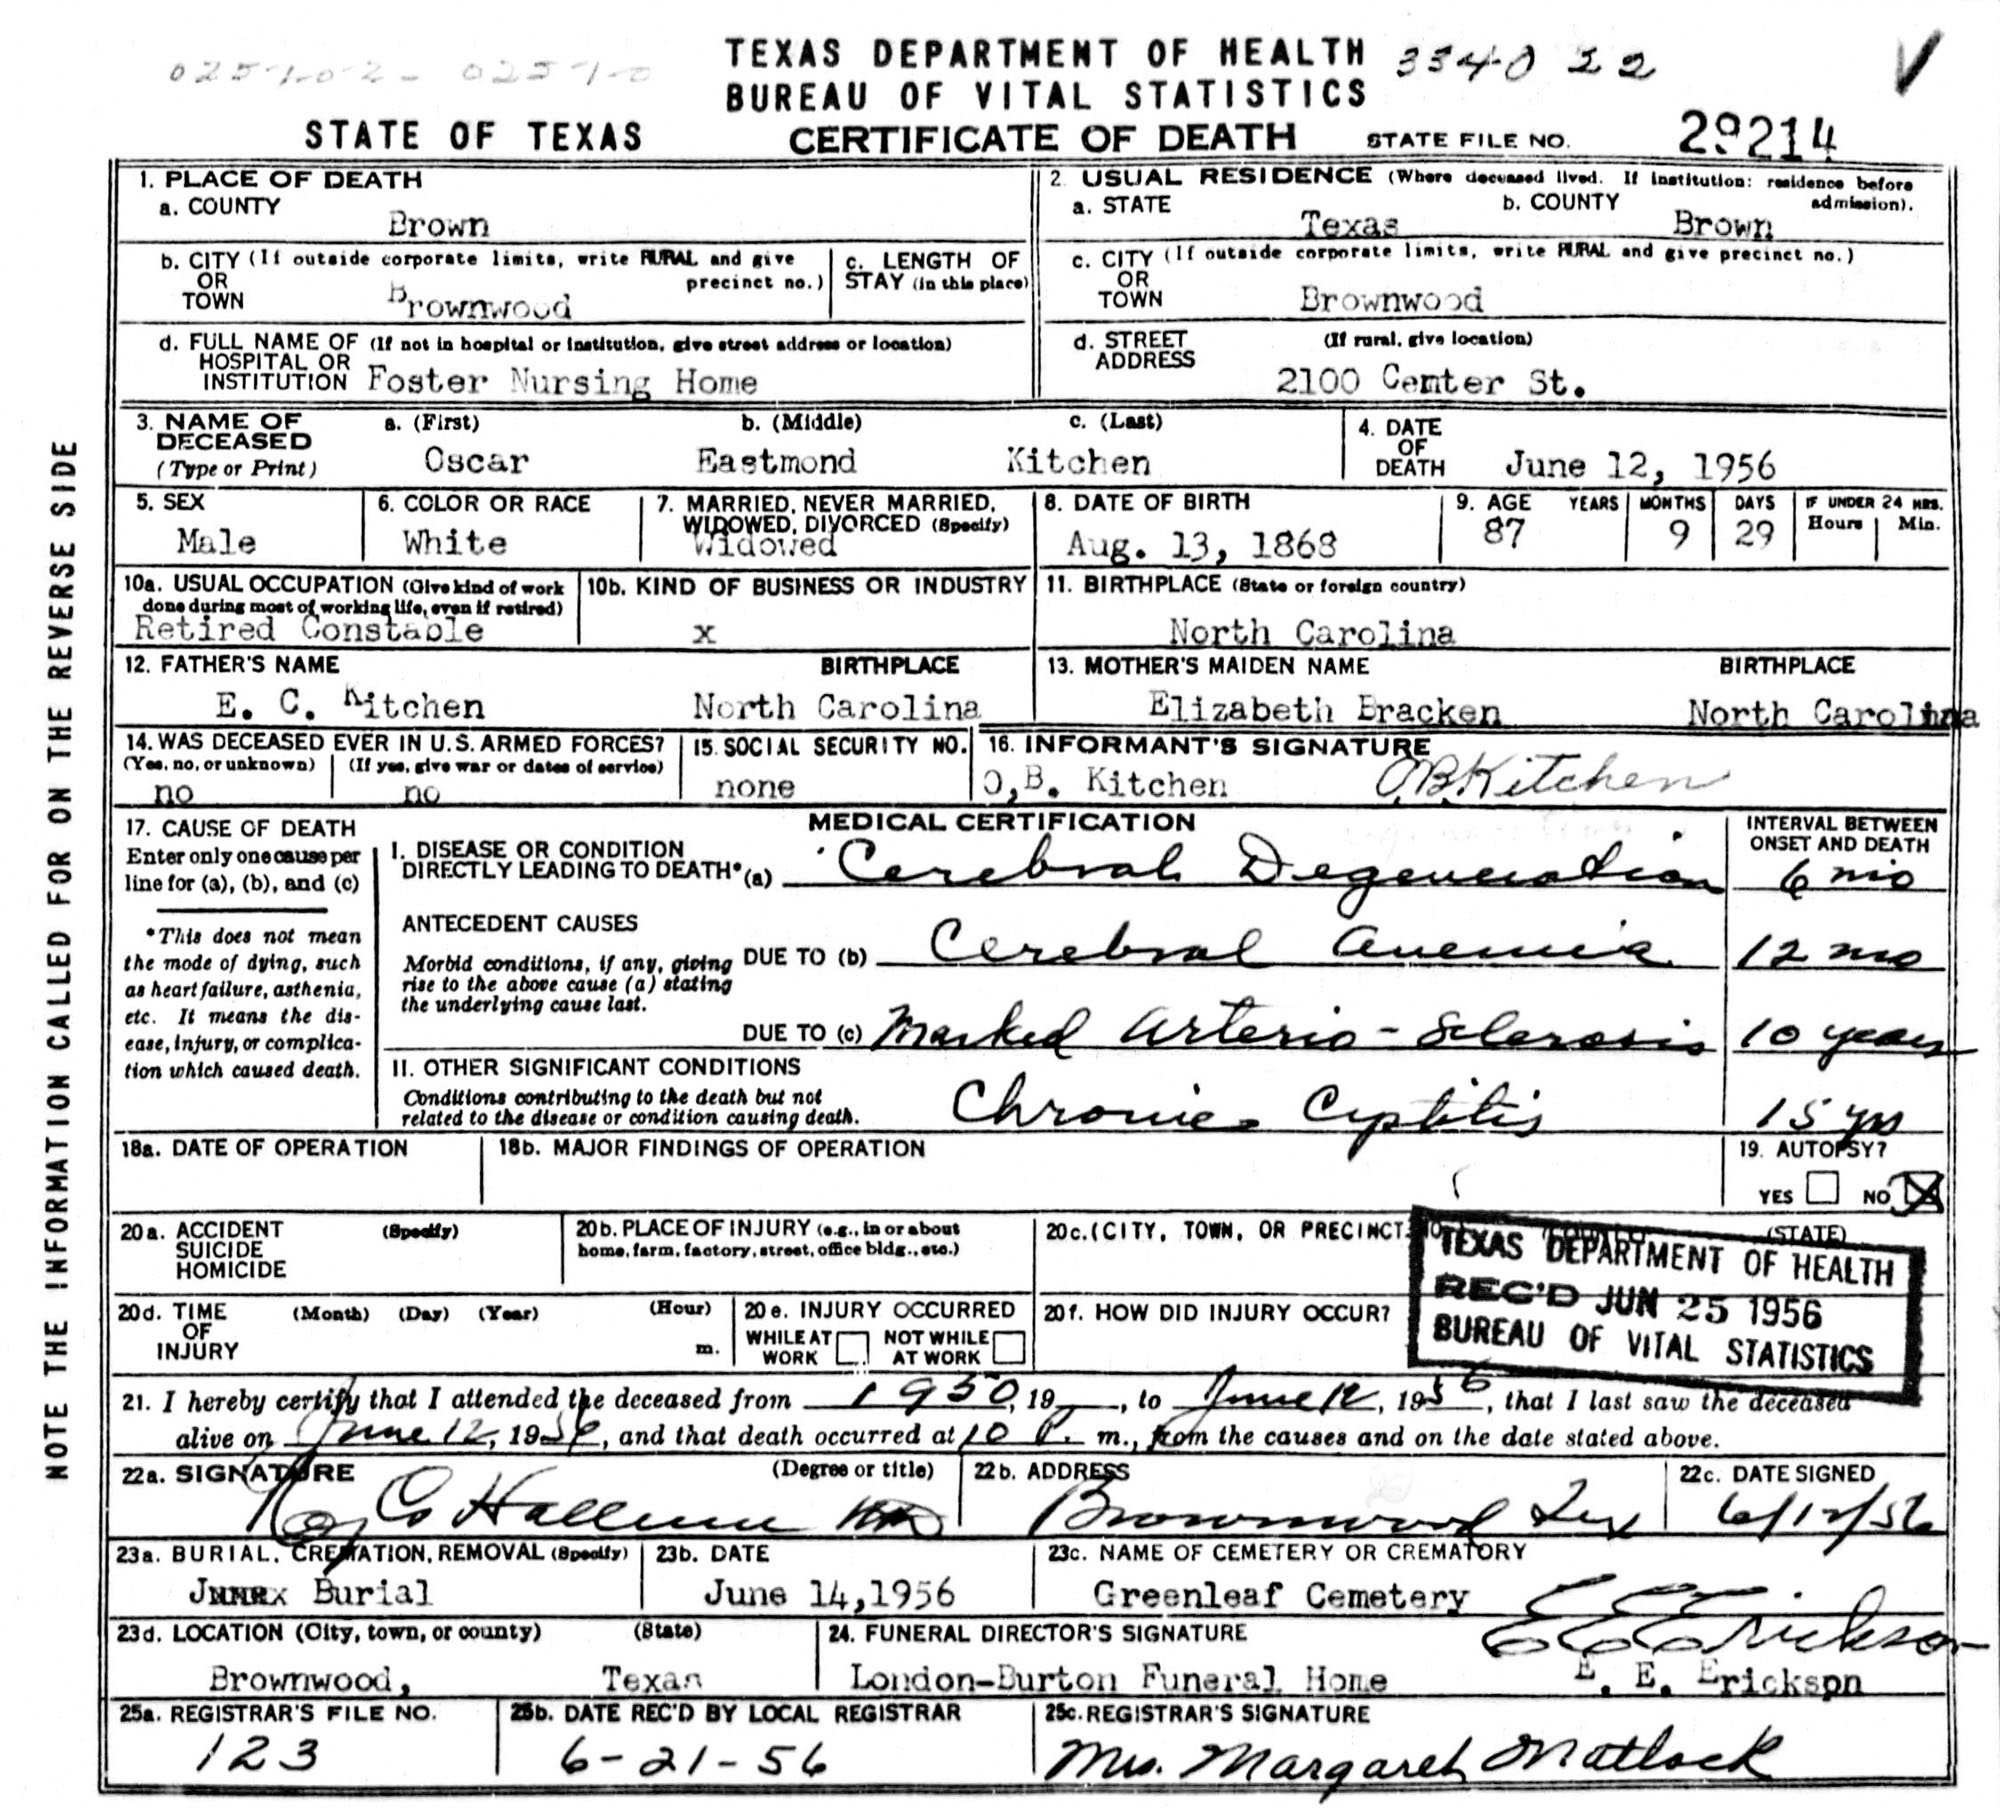 TEXAS DEPARTMENT OF HEALTH 3340 22
BUREAU OF VITAL STATISTICS
STATE OF TEXAS CERTIFICATE OF DEATH STATE FILE NO. 29214
1. PLACE OF DEATH
a. COUNTY
Brown
2. USUAL RESIDENCE (Where deceased lived. If institution: residence before admission).
a. STATE Texas b. COUNTY Brown
b. CITY (If outside corporate limits, write RURAL and give precinct no.)
OR
TOWN Brownwood
c. LENGTH OF
STAY (in this place)
c. CITY (If outside corporate limits, write RURAL and give precinct no.)
OR
TOWN Brownwood
d. FULL NAME OF (If not in hospital or institution, give street address or location)
HOSPITAL OR
INSTITUTION Foster Nursing Home
d. STREET (If rural, give location)
ADDRESS
2100 Center St.
3. NAME OF DECEASED (Type or Print)
a. (First) b. (Middle) c. (Last)
Oscar Eastmond Kitchen
4. DATE OF DEATH June 12, 1956
5. SEX
Male
6. COLOR OR RACE
White
7. MARRIED, NEVER MARRIED,
WIDOWED, DIVORCED (Specify)
Widowed
8. DATE OF BIRTH
Aug. 13, 1868
9. AGE YEARS MONTHS DAYS IF UNDER 24 HRS.
Hours Min.
87 9 29
10a. USUAL OCCUPATION (Give kind of work
done during most of working life, even if retired)
Retired Constable
10b. KIND OF BUSINESS OR INDUSTRY
x
11. BIRTHPLACE (State or foreign country)
North Carolina
12. FATHER'S NAME BIRTHPLACE
E. C. Kitchen North Carolina
13. MOTHER'S MAIDEN NAME BIRTHPLACE
Elizabeth Bracken North Carolina
14. WAS DECEASED EVER IN U.S. ARMED FORCES?
(Yes, no, or unknown) (If yes, give war or dates of service)
no no
15. SOCIAL SECURITY NO.
none
16. INFORMANT'S SIGNATURE
O,B. Kitchen O.B. Kitchen
17. CAUSE OF DEATH
Enter only one cause per
line for (a), (b), and (c)
*This does not mean
the mode of dying, such
as heart failure, asthenia,
etc. It means the dis-
ease, injury, or complica-
tion which caused death.
MEDICAL CERTIFICATION
INTERVAL BETWEEN
ONSET AND DEATH
I. DISEASE OR CONDITION
DIRECTLY LEADING TO DEATH* (a) Cerebral Degeneration 6 mo
ANTECEDENT CAUSES
Morbid conditions, if any, giving
rise to the above cause (a) stating
the underlying cause last.
DUE TO (b) Cerebral anemia 12 mo
DUE TO (c) Marked Arterio-Sclerosis 10 years
II. OTHER SIGNIFICANT CONDITIONS
Conditions contributing to the death but not
related to the disease or condition causing death.
Chronic Cystitis 15 yrs
18a. DATE OF OPERATION
18b. MAJOR FINDINGS OF OPERATION
19. AUTOPSY?
YES NO X
20a. ACCIDENT (Specify)
SUICIDE
HOMICIDE
20b. PLACE OF INJURY (e.g., in or about
home, farm, factory, street, office bldg., etc.)
20c. (CITY, TOWN, OR PRECINCT NO.) (STATE)
20d. TIME (Month) (Day) (Year) (Hour)
OF
INJURY m.
20e. INJURY OCCURRED
WHILE AT WORK NOT WHILE AT WORK
20f. HOW DID INJURY OCCUR?
TEXAS DEPARTMENT OF HEALTH
REC'D JUN 25 1956
BUREAU OF VITAL STATISTICS
21. I hereby certify that I attended the deceased from 1950, 19 , to June 12, 1956, that I last saw the deceased
alive on June 12, 1956, and that death occurred at 10 P. m., from the causes and on the date stated above.
22a. SIGNATURE (Degree or title)
Hallum MD
22b. ADDRESS
Brownwood Tex
22c. DATE SIGNED
6/12/56
23a. BURIAL, CREMATION, REMOVAL (Specify)
Burial
23b. DATE
June 14,1956
23c. NAME OF CEMETERY OR CREMATORY
Greenleaf Cemetery
23d. LOCATION (City, town, or county) (State)
Brownwood, Texas
24. FUNERAL DIRECTOR'S SIGNATURE
E E Erickson
London-Burton Funeral Home E. E. Erickspn
25a. REGISTRAR'S FILE NO.
123
25b. DATE REC'D BY LOCAL REGISTRAR
6-21-56
25c. REGISTRAR'S SIGNATURE
Mrs. Margaret Matlock
NOTE THE INFORMATION CALLED FOR ON THE REVERSE SIDE